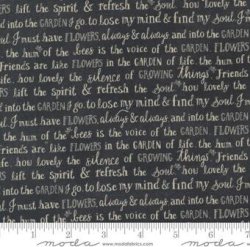 RS lift the Spirit & refresh the soul. how lovely the
and into the GARDEN I go to lose my mind & find my soul. I
d. I must have FLOWERS, always & always and into the GARDEN
the hum of the bees is the voice of the GARDEN. FLOWERS
Friends are like FLOWERS in the GARDEN of life. the hum
le. how lovely the silence of GROWING Things Friends
FLOWERS lift the Spirit & refresh the soul. how lovely
ays and into the GARDEN I go to lose my mind & find my
y soul. I must have FLOWERS, always & always and into the
fe. the hum of the bees is the voice of the GARDEN
Friends are like FLOWERS in the GARDEN of life.
the soul. how lovely the silence of GROWING
FLOWERS lift the Spirit & refresh the soul.
and into the GARDEN I go to lose my mind & find my soul. I
d. I must have FLOWERS, always & always and into the GARDEN
1" 2 3 4 5 6 7
moda
www.modafabrics.com
moda